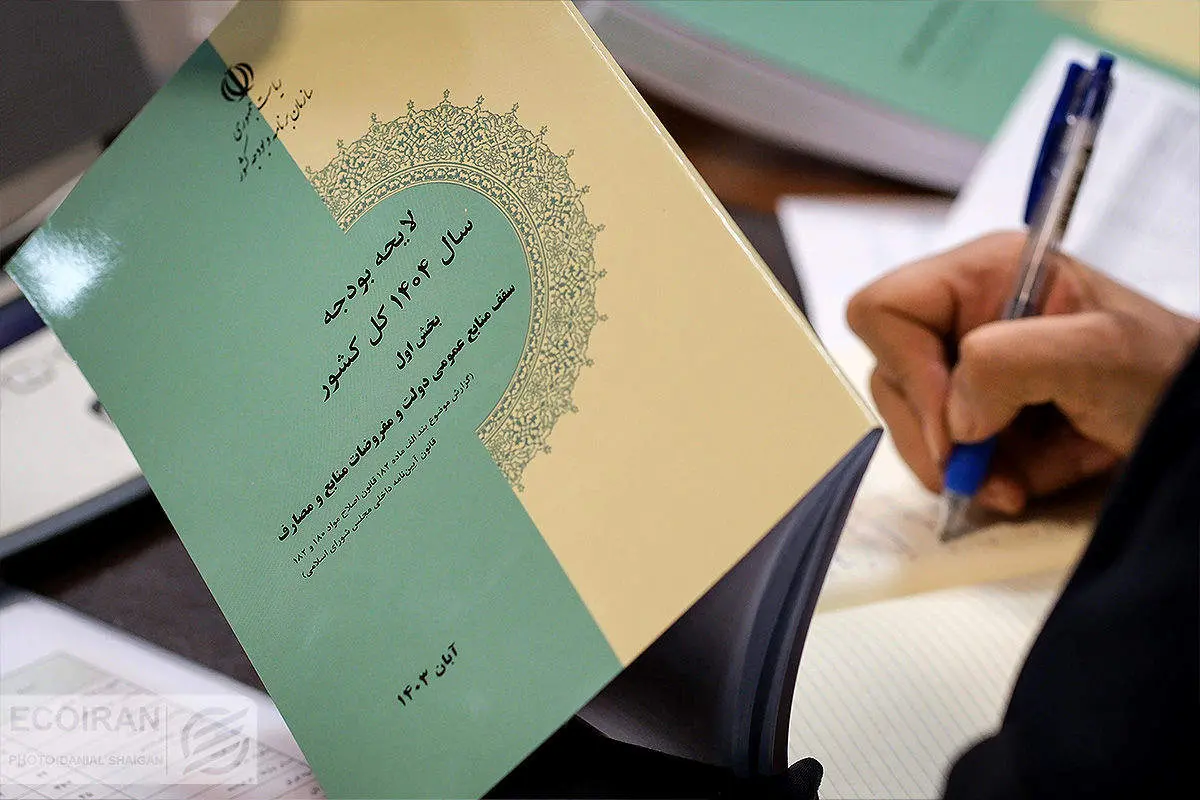 ریاست جمهوری
سازمان برنامه و بودجه کشور
لایحه بودجه
سال ۱۴۰۴ کل کشور
بخش اول
سقف منابع عمومی دولت و مفروضات منابع و مصارف
(گزارش موضوع بند الف ماده ۱۸۲ قانون اصلاح مواد ۱۸۰ و ۱۸۲
قانون آیین‌نامه داخلی مجلس شورای اسلامی)
آبان ۱۴۰۳
ECOIRAN
PHOTO:DANIAL SHAIGAN